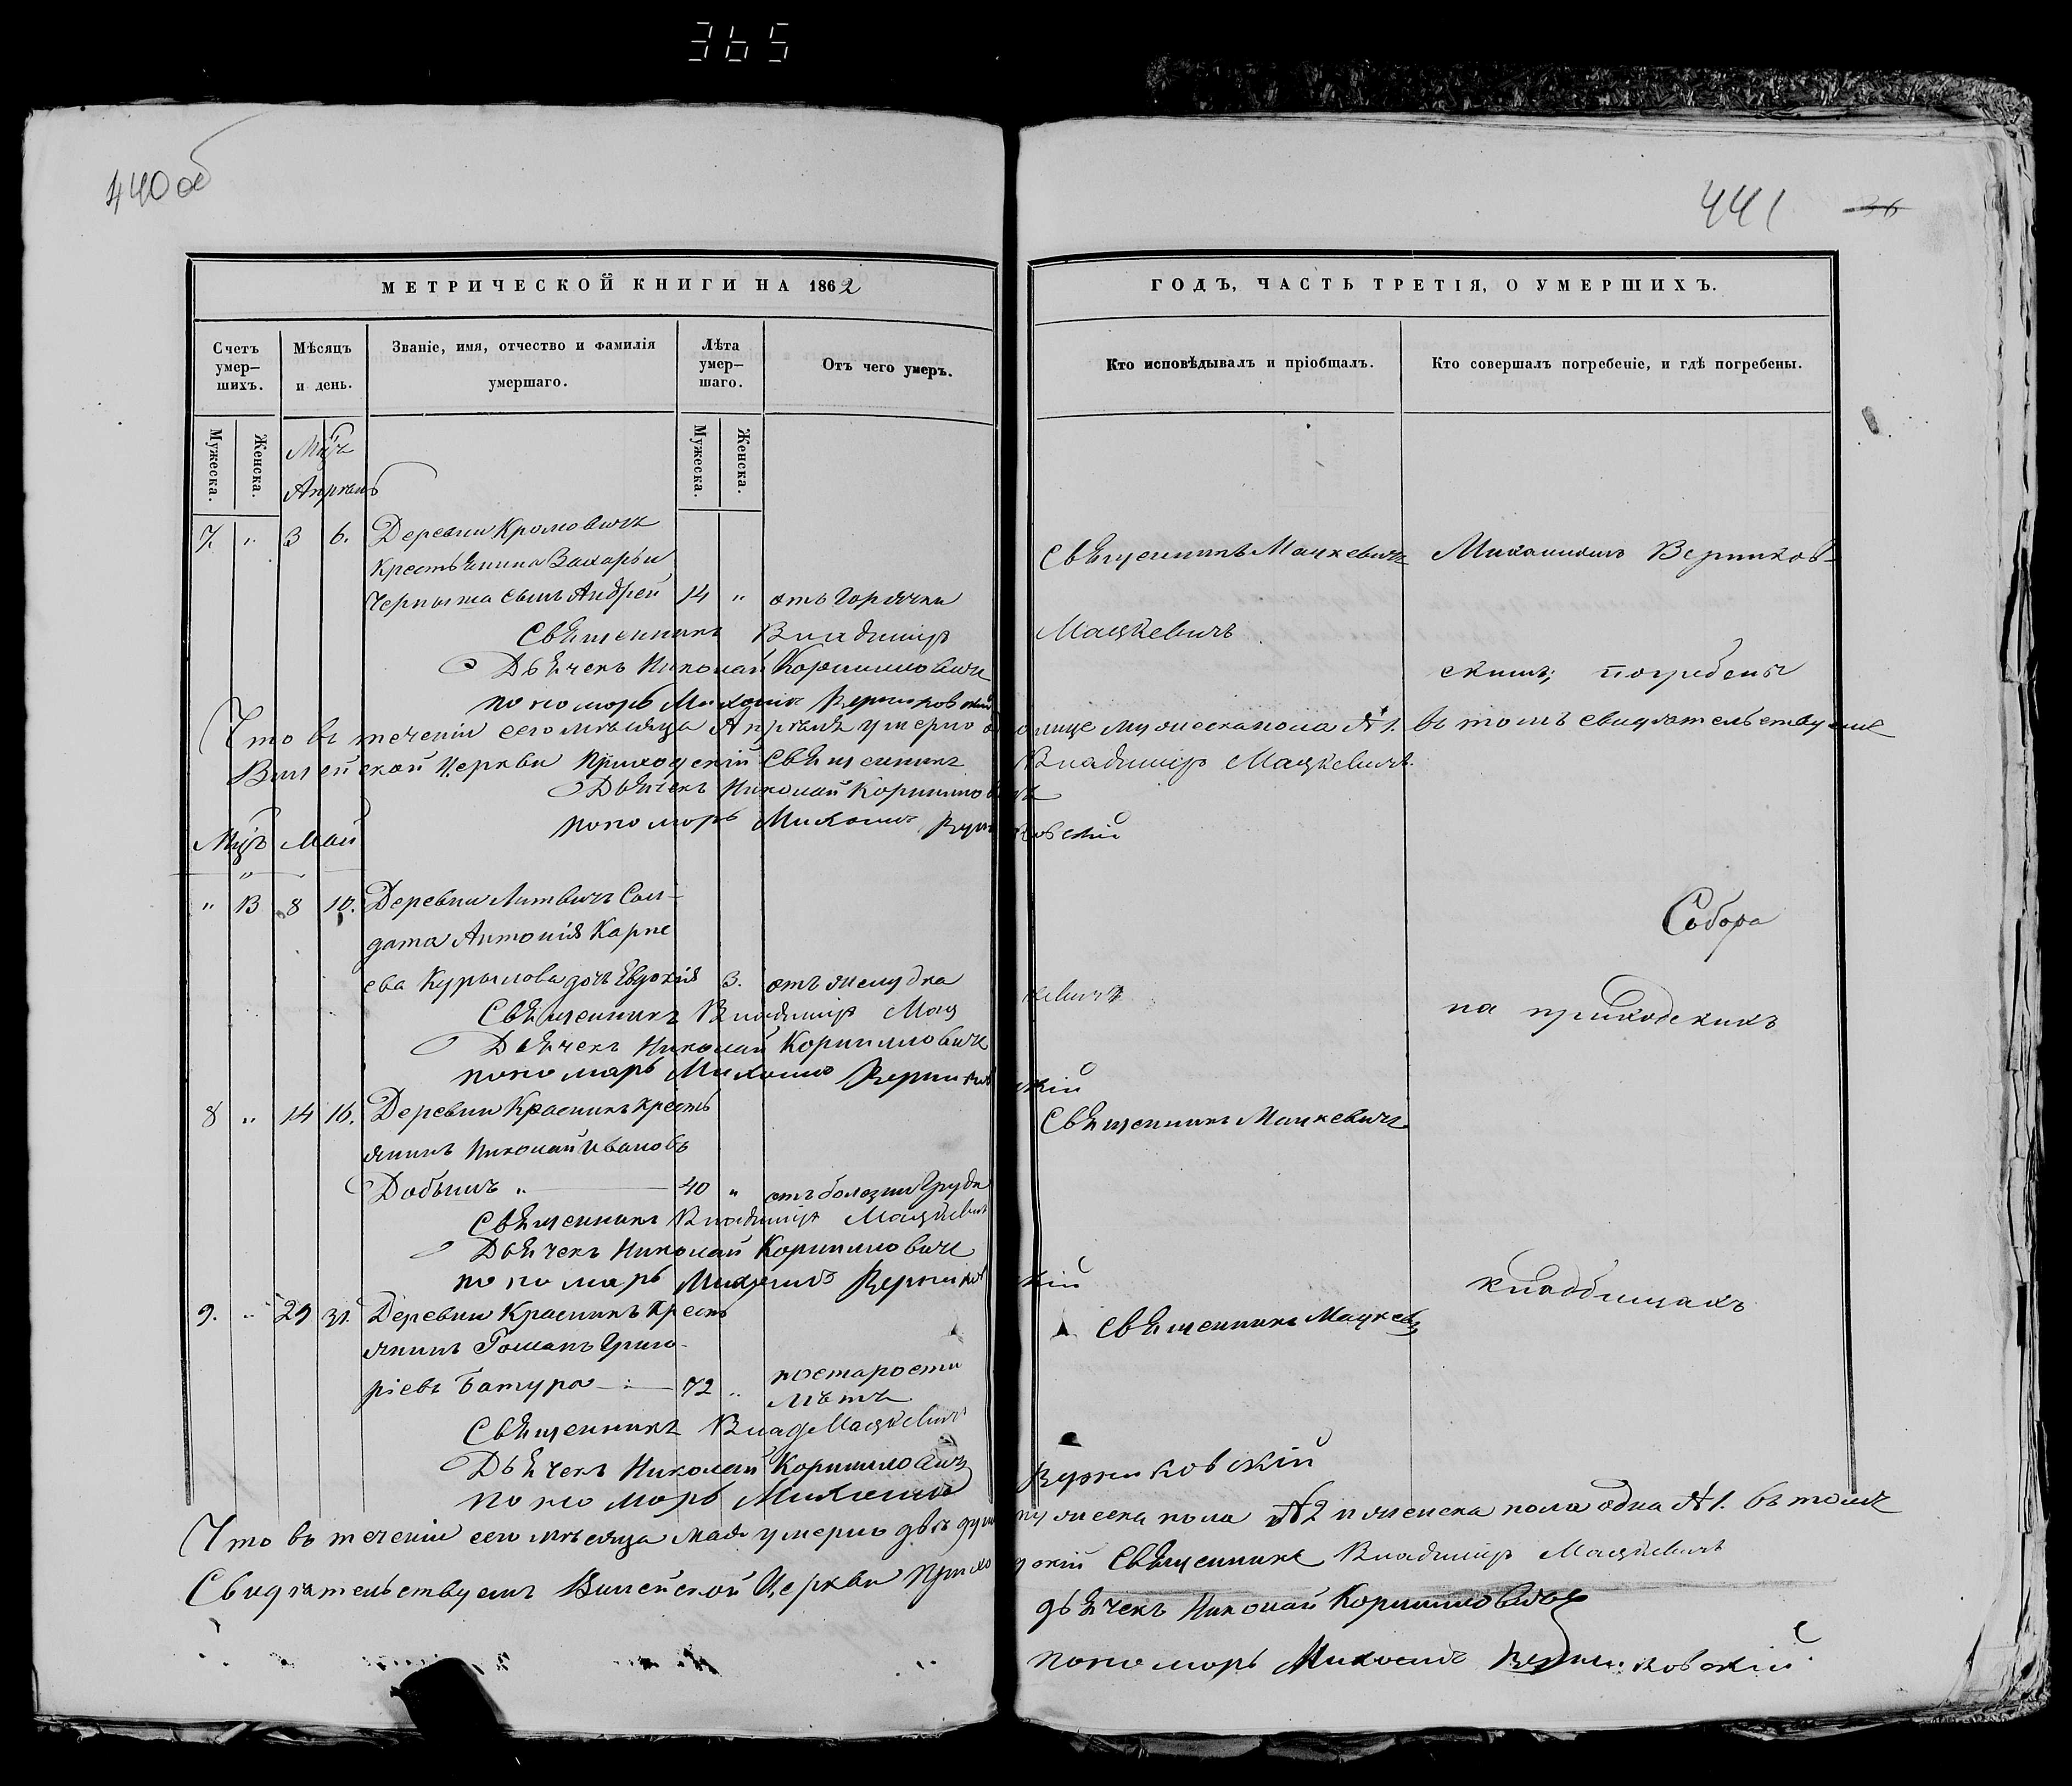 365
440 об
441
36
МЕТРИЧЕСКОЙ КНИГИ НА 1862
ГОДЪ, ЧАСТЬ ТРЕТІЯ, О УМЕРШИХЪ.
Счетъ умер-шихъ.
Мѣсяцъ и день.
Званіе, имя, отчество и фамилія умершаго.
Лѣта умер-шаго.
Отъ чего умеръ.
Кто исповѣдывалъ и пріобщалъ.
Кто совершалъ погребеніе, и гдѣ погребены.
Мужеска.
Женска.
Мужеска.
Женска.
Мцъ
Апрѣль
7. " 3 6. Деревни
крестьянина Захарьи
сынъ Андрей 14 " отъ горячки
Священникъ Мацкевичъ
Священникъ Владиміръ Мацкевичъ
Дьячекъ Николай
скимъ; погребены
пономарь Михаилъ
Что въ теченіи сего мѣсяца Апрѣля умерло мужеска пола №1. въ томъ свидѣтельствуемъ
Церкви Приходскій Священникъ Владиміръ Мацкевичъ.
Дьячекъ Николай
пономарь Михаилъ
Мцъ Май
" В 8 10. Деревни Литвичъ Сол-
Собора
дата Антонія Карпе
ева Курылова дочь Евдокія 3. отъ желудка
Священникъ Владиміръ Мацкевичъ
на приходскихъ
Дьячекъ Николай
пономарь Михаилъ
8 " 14 16. Деревни Красникъ кресть
Священникъ Мацкевичъ
янинъ Николай Ивановъ
40 " отъ болезни груди
Священникъ Владиміръ Мацкевичъ
Дьячекъ Николай
пономарь Михаилъ
кладбищахъ
9. " 29 31. Деревни Красникъ Кресть
Священникъ Мацкев
янинъ Романъ Григо-
ріевъ Батура 72 " по старости
лѣтъ
Священникъ Влад Мацкевичъ
Дьячекъ Николай
пономарь Михаилъ
Что въ теченіи сего мѣсяца мая умерло двѣ души мужеска пола №2 и женска пола одна №1. въ томъ
Свидѣтельствуемъ Церкви Приходскій Священникъ Владиміръ Мацкевичъ
дьячекъ Николай
пономарь Михаилъ